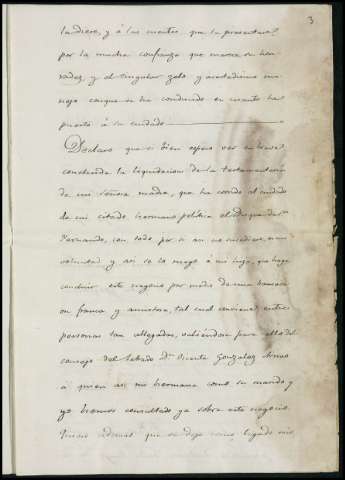 3
la diere, y á las cuentas que la presentare
por la mucha confianza que merece su hon-
radez, y el singular zelo y acertadisimo ma-
nejo conque se ha conducido en cuanto ha
puesto á su cuidado
Declaro que si bien espero ver en breve
concluida la liquidacion de la testamentaria
de mi Señora madre, que ha corrido al cuidado
de mi citado hermano politico el Duque de Sn
Fernando, con todo por si asi no sucediere, es mi
voluntad y asi se lo ruego á mi hija, que haga
concluir este negocio por medio de una transacci
on franca y amistosa, tal cual conviene entre
personas tan allegadas, valiendose para ello del
consejo del Letrado Dn Vicente Gonzalez Arnao
á quien asi mi hermana como su marido y
yo hemos consultado ya sobre este negocio.
Quiero ademas que se deje como legado mio